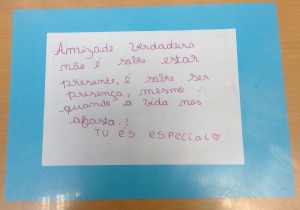 Amizade verdadeira
não é sobre estar
presente, é sobre ser
presença, mesmo
quando a vida nos
afasta.!
Tu és especial♡